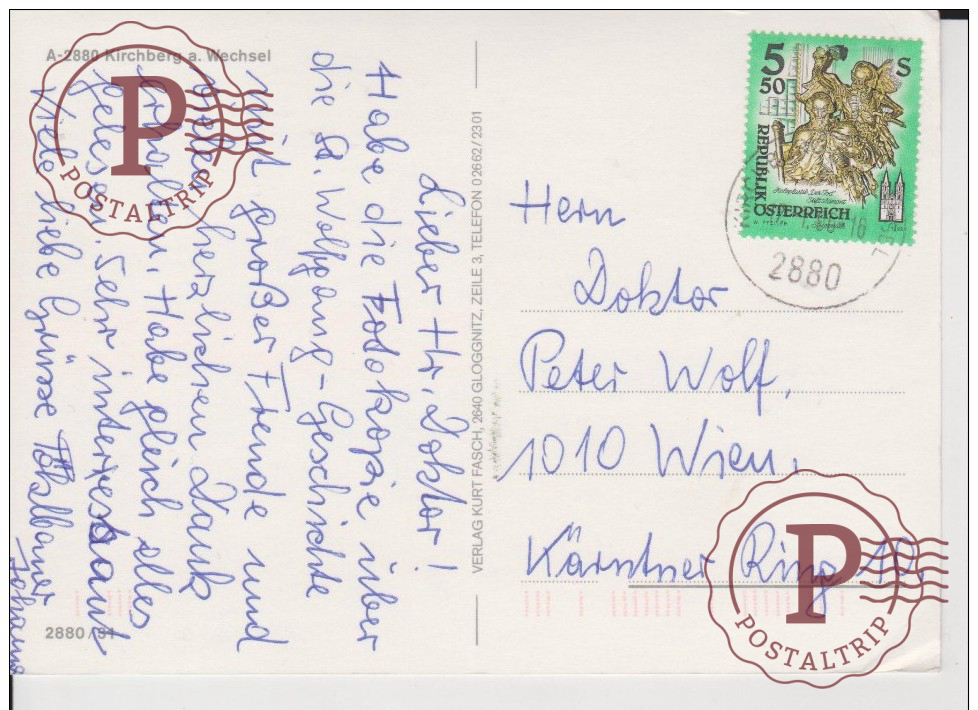 A-2880 Kirchberg a. Wechsel
Lieber Hr. Doktor!
Habe die Fotokopie über
die St. Wolfgang-Geschichte
mit großer Freude und
vielen herzlichen Dank
erhalten. Habe gleich alles
gelesen. Sehr interessant
Viele liebe Grüsse
Johann
2880/31
VERLAG KURT FASCH, 2640 GLOGGNITZ, ZEILE 3, TELEFON 02662/2301
5 50 S
REPUBLIK
ÖSTERREICH
2880
Herrn
Doktor
Peter Wolf,
1010 Wien.
Kärntner Ring
P
POSTALTRIP
P
POSTALTRIP